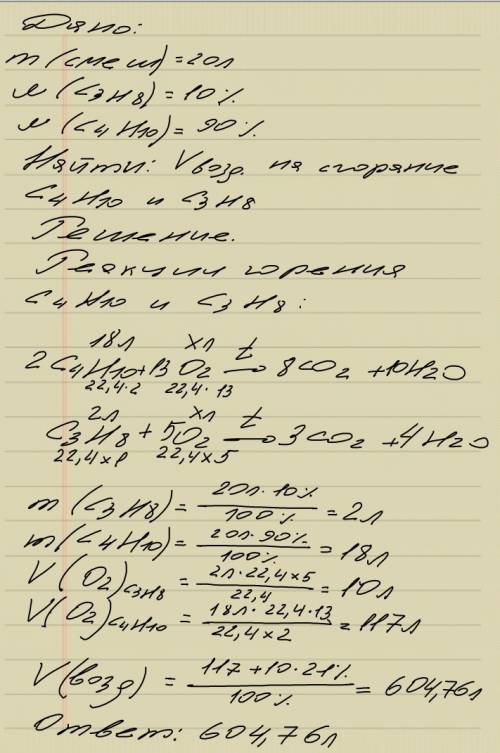 Дано:
m(смеш)=20л
м(C3H8)=10%
м(C4H10)=90%
Найти: Vвозд. на сгорание
C4H10 и C3H8
Решение.
Реакции горения
C4H10 и C3H8:
18л хл t
2C4H10+13O2→8CO2+10H2O
22,4·2 22,4·13
2л хл t
C3H8+5O2→3CO2+4H2O
22,4×1 22,4×5
m(C3H8)=20л·10%/100%=2л
m(C4H10)=20л·90%/100%=18л
V(O2)C3H8=2л·22,4×5/22,4=10л
V(O2)C4H10=18л·22,4·13/22,4×2=117л
V(возд)=117+10·21%/100%=604,76л
Ответ: 604,76л